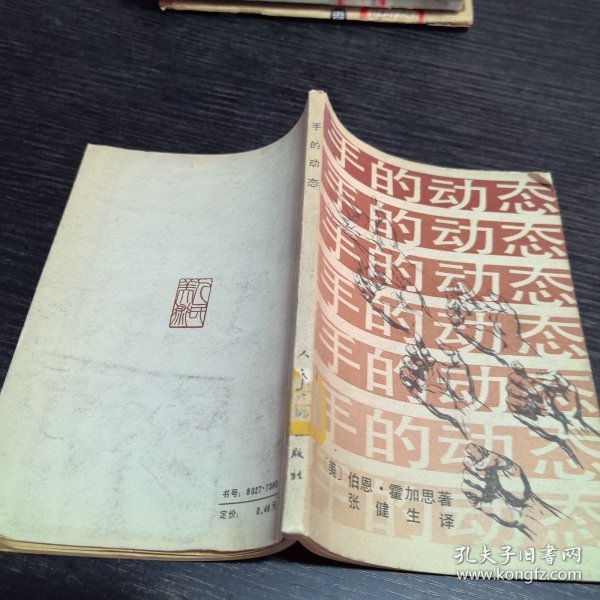 手的动态
手的动态
手的动态
手的动态
手的动态
手的动态
手的动态
[美] 伯恩·霍加思著
张健生译
手的动态
人民
版社
书号: 8027·7
定价: 0.46元
孔夫子旧书网
www.kongfz.com